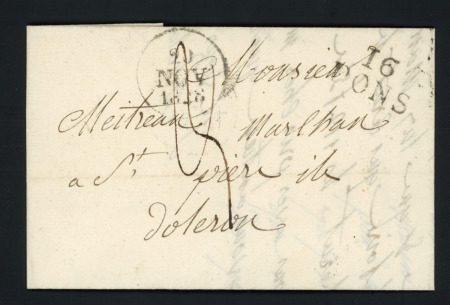 NOV
16
PONS
Monsieur
Meitreau Marchan
a St. pière ile
doleron